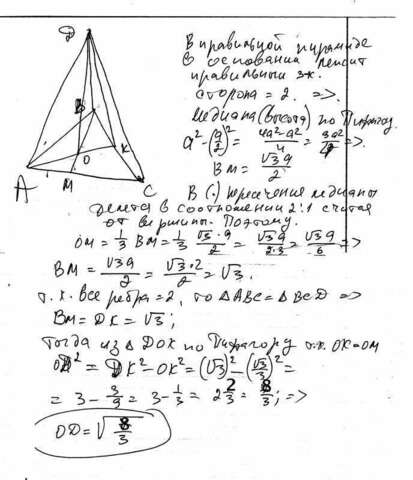 D
B
O
K
A
M
C
В правильной пирамиде
в основании лежит
правильный
сторона = 2. =>.
Медиана (высота) по Пифагору
a² - (a/2)² = (4a² - a²)/4 = 3a²/4 =>.
BM = √3a/2
В (·) пересечения медианы
делятся в соотношении 2:1 считая
от вершины. Поэтому.
OM = 1/3 BM = 1/3 √3·a/2 = √3a/2·3 = √3a/6 =>
BM = √3a/2 = √3·2/2 = √3.
т.к. все ребра = 2, то △ABC = △BCD =>
BM = DK = √3;
Тогда из △ DOK по Пифагору т.к. OK = OM
OD² = DK² - OK² = (√3)² - (√3/3)² =
= 3 - 3/9 = 3 - 1/3 = 2 2/3 = 8/3; =>
OD = √8/3